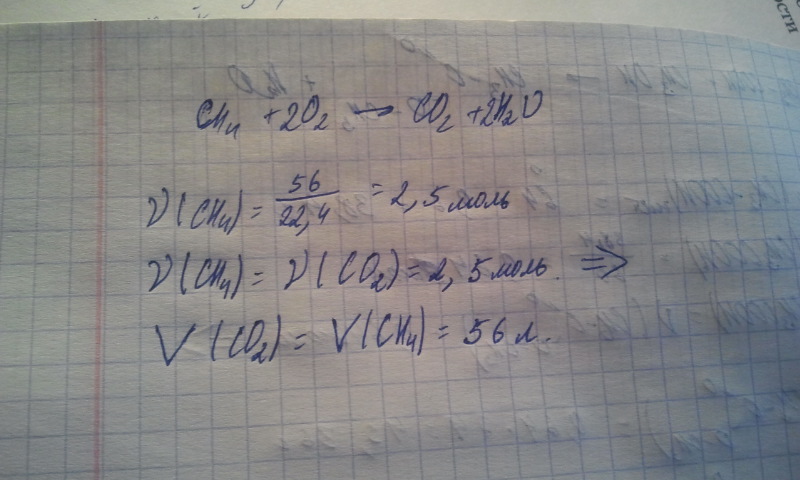 CH₄ + 2O₂ → CO₂ + 2H₂O
ν(CH₄) = 56/22,4 = 2,5 моль
ν(CH₄) = ν(CO₂) = 2,5 моль. ⇒
V(CO₂) = V(CH₄) = 56 л.
ости